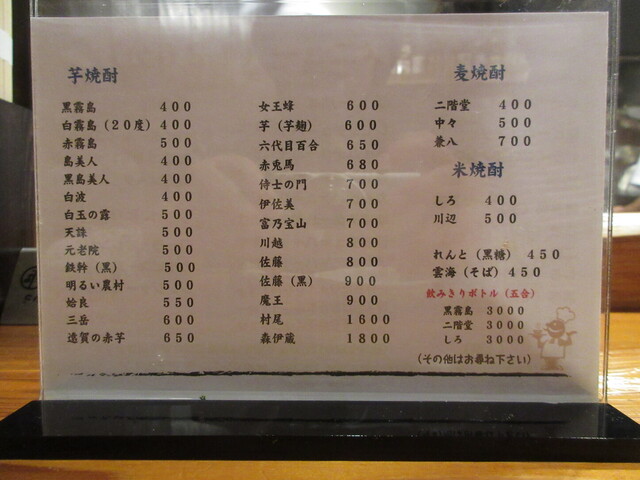 芋焼酎
黒霧島 400
白霧島（20度）400
赤霧島 500
島美人 400
黒島美人 400
白波 400
白玉の露 500
天誅 500
元老院 500
鉄幹（黒） 500
明るい農村 500
姶良 550
三岳 600
遠賀の赤芋 650
女王蜂 600
芋（芋麹） 600
六代目百合 650
赤兎馬 680
侍士の門 700
伊佐美 700
富乃宝山 700
川越 800
佐藤 800
佐藤（黒） 900
魔王 900
村尾 1600
森伊蔵 1800
麦焼酎
二階堂 400
中々 500
兼八 700
米焼酎
しろ 400
川辺 500
れんと（黒糖） 450
雲海（そば）450
飲みきりボトル（五合）
黒霧島 3000
二階堂 3000
しろ 3000
（その他はお尋ね下さい）